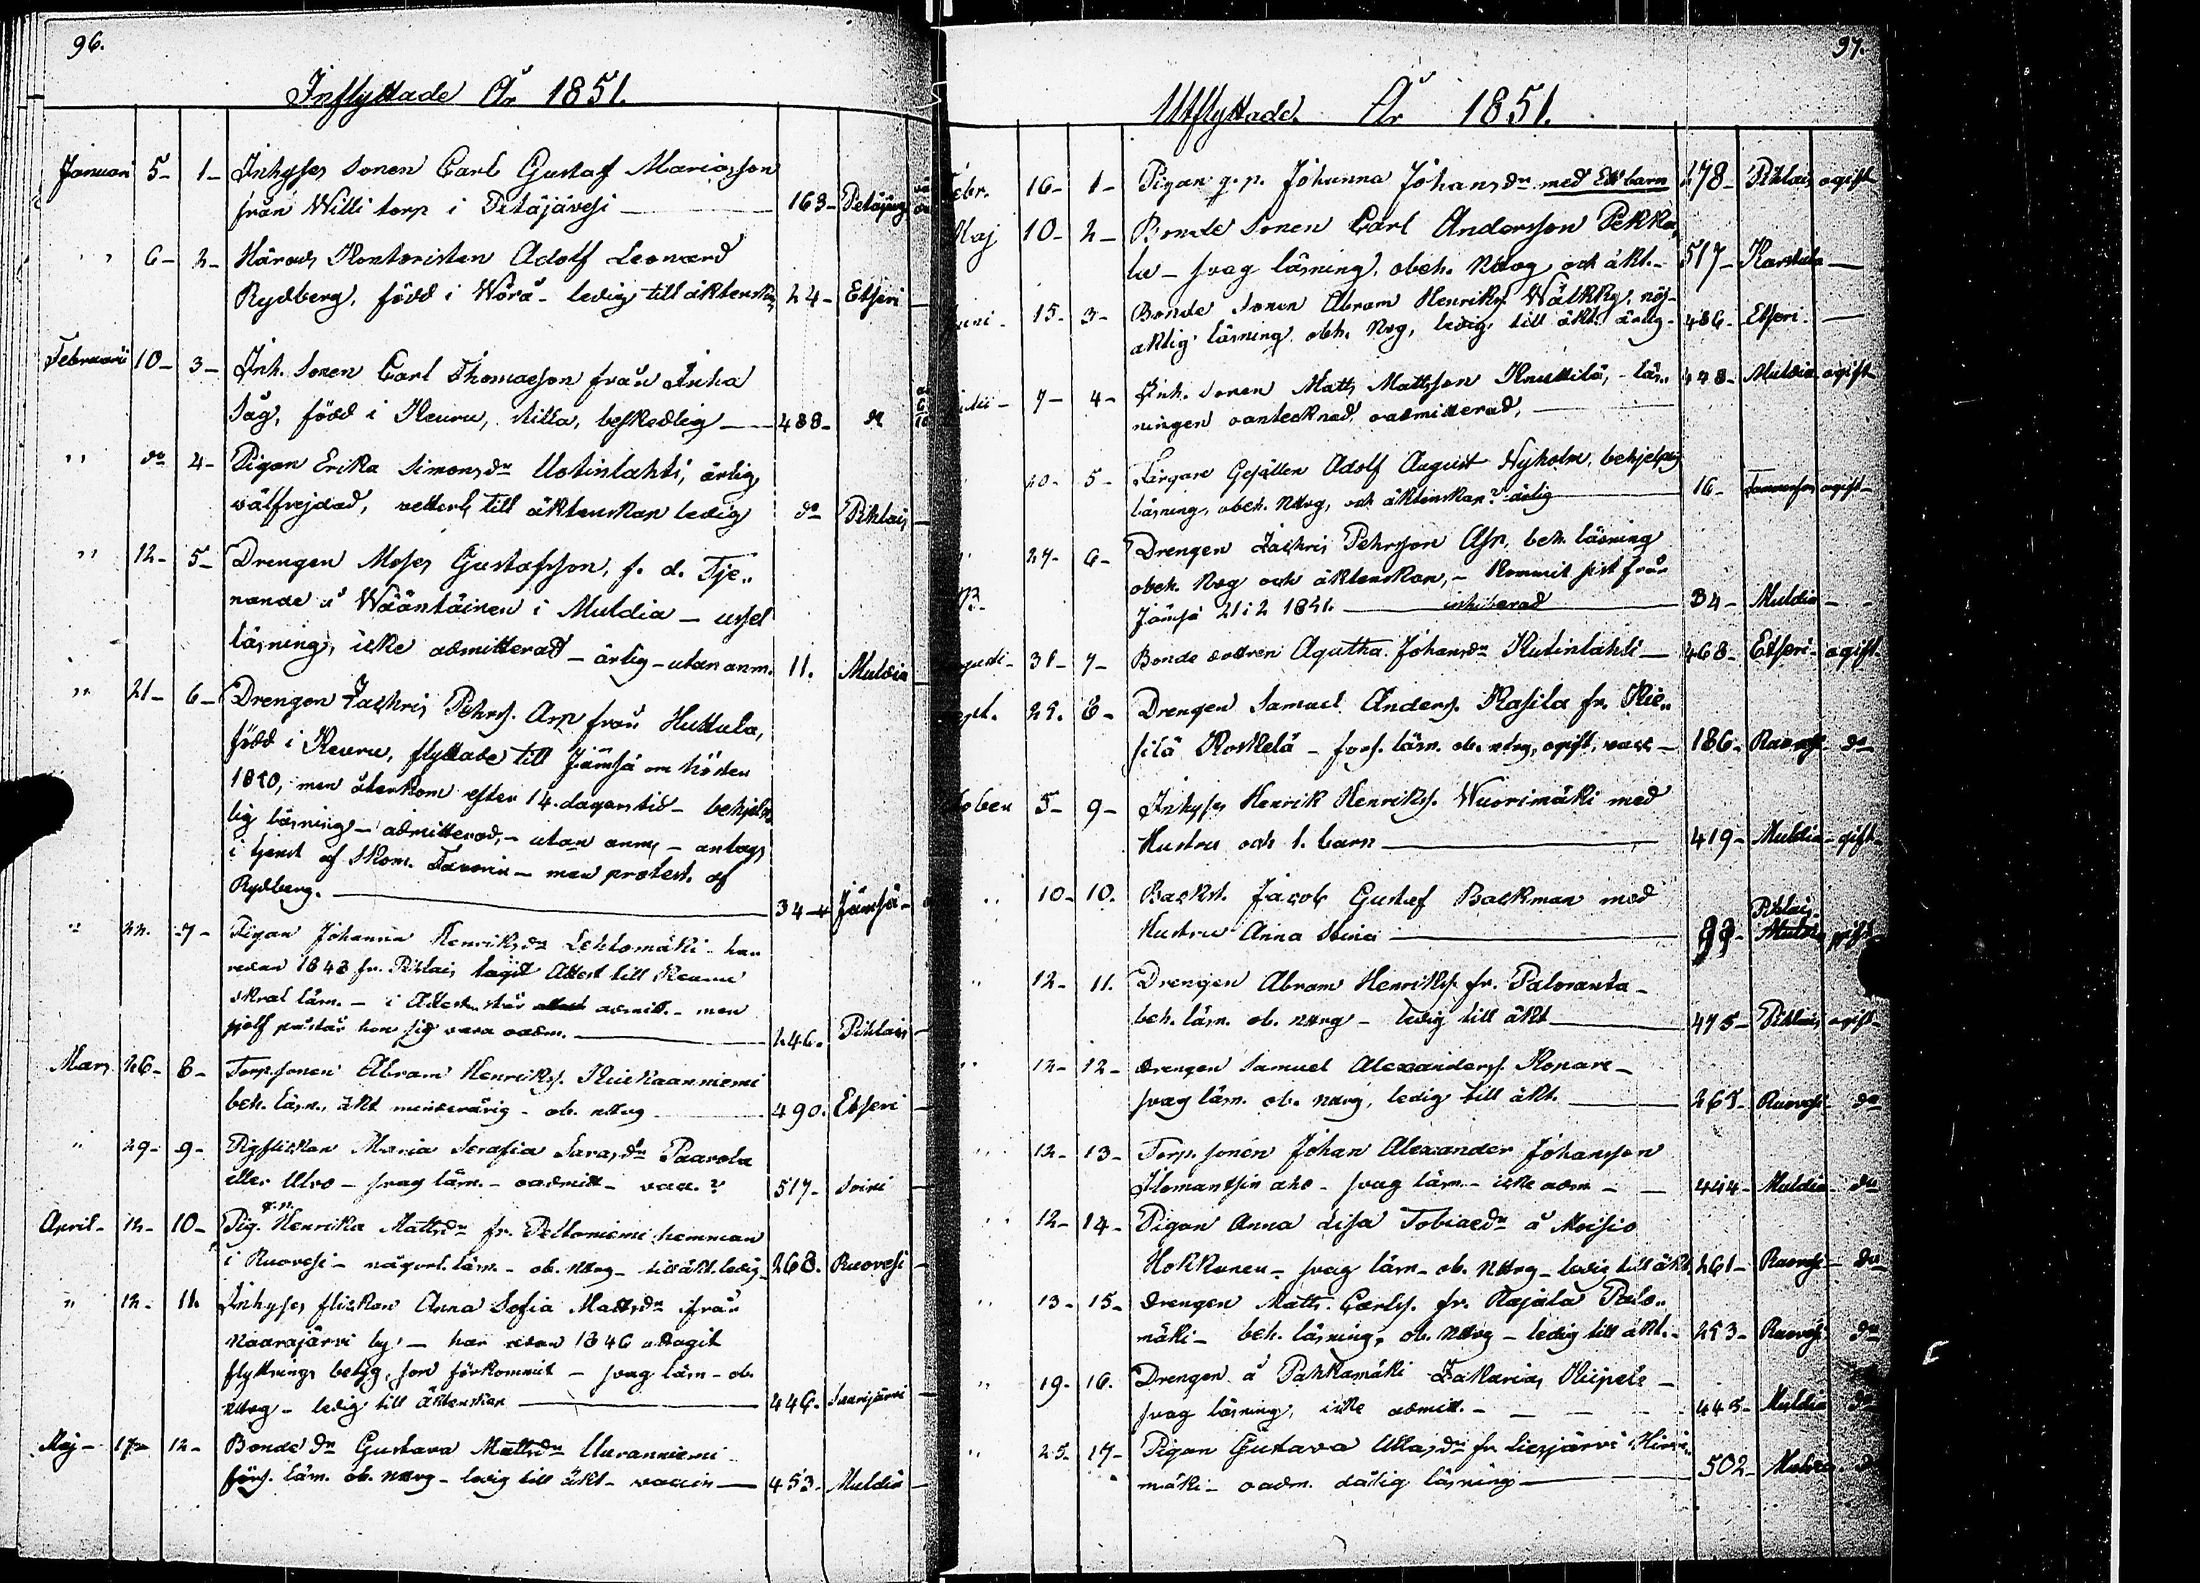 96.
Inflyttade År 1851.
Januari 5- 1- Inhyses Sonen Carl Gustaf Mariasson
från Willi torp i Petäjävesi 163- Petäjäv
" 6- 2- Härads Kontoristen Adolf Leonard
Rydberg, född i Wörå - ledig till äktenskap 24- Etseri
Februari 10- 3- Inh. Sonen Carl Thomasson från Inha
Såg, född i Keuru, stilla, beskedlig 488- do
" do 4- Pigan Erika Simonsdr Uotinlahti, ärlig
välfrejdad, till äktenskap ledig do Pihlais
" 12- 5- Drengen Moses Gustafsson, f. d. Tje„
nande å Wääntäinen i Muldia - usel
läsning, icke admitterad - ärlig - utan anm. 11. Muldia
" 21- 6- Drengen Zachris Pehrs. Asp från Huttula,
född i Keuru, flyttade till Jämsä om hösten
1850, men återkom efter 14. dagars tid - behjelp
lig läsning - admitterad, - utan anm - antags
i tjenst af Skom. Favorin - med protest. af
Rydberg. 34- Jämsä-
" 22. 7- Pigan Johanna Henriksdr Lehtomäki - har
redan 1848 fr. Pihlais tagit Attest till Keuru
skral läsn. - i Attest. står admitt. - men
sjelf påstår hon sig vara oadm. 246. Pihlais
Mars 26- 8- Torp. sonen Abram Henrikss. Kiukaanniemi
beh. läsn., äkt minderårig - ob. nttvg 490. Etseri
" 29- 9- Pigflickan Maria Serafia Sarasdr Paavola
eller Ulvo - svag läsn. - oadmitt - vacc.? 517- Soini
q.p.
April- 12- 10- Pig. Henrika Mattsdr fr. Peltoniemi hemman
i Ruovesi - någorl. läsn. - ob. nttvg - till äkt. ledig 268. Ruovesi
" 12- 11. Inhyses flickan Anna Sofia Mattsdr ifrån
Naarajärvi by - har redan 1846 uttagit
flyttnings betyg, som förkommit - svag läsn - ob.
nttvg - ledig till äktenskap 446. Saarijärvi
Maj- 17- 12- Bonde dr Gustava Mattsdr Uuranniemi
förs. läsn. ob. nttvg - ledig till äkt- vaccin 453- Muldia
97.
Utflyttade År 1851.
Febr. 16- 1- Pigan q.p. Johanna Johansdr med Ett barn 178- Pihlais ogift
Maj 10- 2- Bonde Sonen Carl Andersson Pekka„
la - svag läsning, obeh. Nttvg och äkt.- 517- Karstula
Juni- 15- 3- Bonde Sonen Abram Henriks. Wälkky, nöj-
aktig läsning obh. Nvg, ledig till äkt. ärlig- 486- Etseri-
7- 4- Inh. Sonen Matts Mattsson Knuttila, - läs„ 448- Muldia ogift
ningen oantecknad, oadmitterad,
20- 5- Färgare Gesällen Adolf August Nyholm, behjelplig
läsning, obeh. Nttvg, och äktenskap? ärlig 16- Tammerfors ogift-
27- 6- Drengen Zachris Pehrsson Asp, beh. läsning
obeh. Nvg och äktenskap, - Kommit sist från
Jämsä 21/2 1851. inhiberad 34- Muldia - -
Augusti- 31- 7- Bonde dottren Agatha Johansdr Kutinlahti 468- Etseri- ogift
Sept. 25. 8- Drengen Samuel Anders. Kasila fr. Rie„
silä Koskelä - fors. läsn. ob. nttvg, ogift, vacc- 186- Ruovesi- do
5- 9- Inhyses Henrik Henrikss. Wuorimäki med
Hustru och 1. barn 419- Muldia- gift-
" 10- 10. Backst. Jacob Gustaf Backman med Pihlais-
Hustru Anna Stina Muldia gift
" 12- 11. Drengen Abram Henrikss. fr. Paloranta-
beh. läsn. ob. nttvg - ledig till äkt 475- Pihlais ogift-
" 12- 12- Drengen Samuel Alexanders. Kopare-
svag läsn. ob. nttvg, ledig till äkt. 265- Ruovesi- do
" 12- 13- Torp. sonen Johan Alexander Johansson
Ilomantsin aho - svag läsn. - icke adm 444- Muldia- do
" 12- 14- Pigan Anna Lisa Tobiaedr å Moisio
Hokkanen - svag läsn - ob. Nttvg - ledig till äkt. 261- Ruovesi- do
" 13- 15- Drengen Matts Carls. fr. Kajala Palo„
mäki - beh. läsning, ob. Nttvg - ledig till äkt.- 253- Ruovesi- do
" 19- 16. Drengen å Pahkamäki Zakarias Kiipele -
svag läsning, icke admitt. 445- Muldia do
" 25- 17- Pigan Gustava Ullasdr fr. Liesjärvi
mäki - oadm. dålig läsning 502- Muldia-